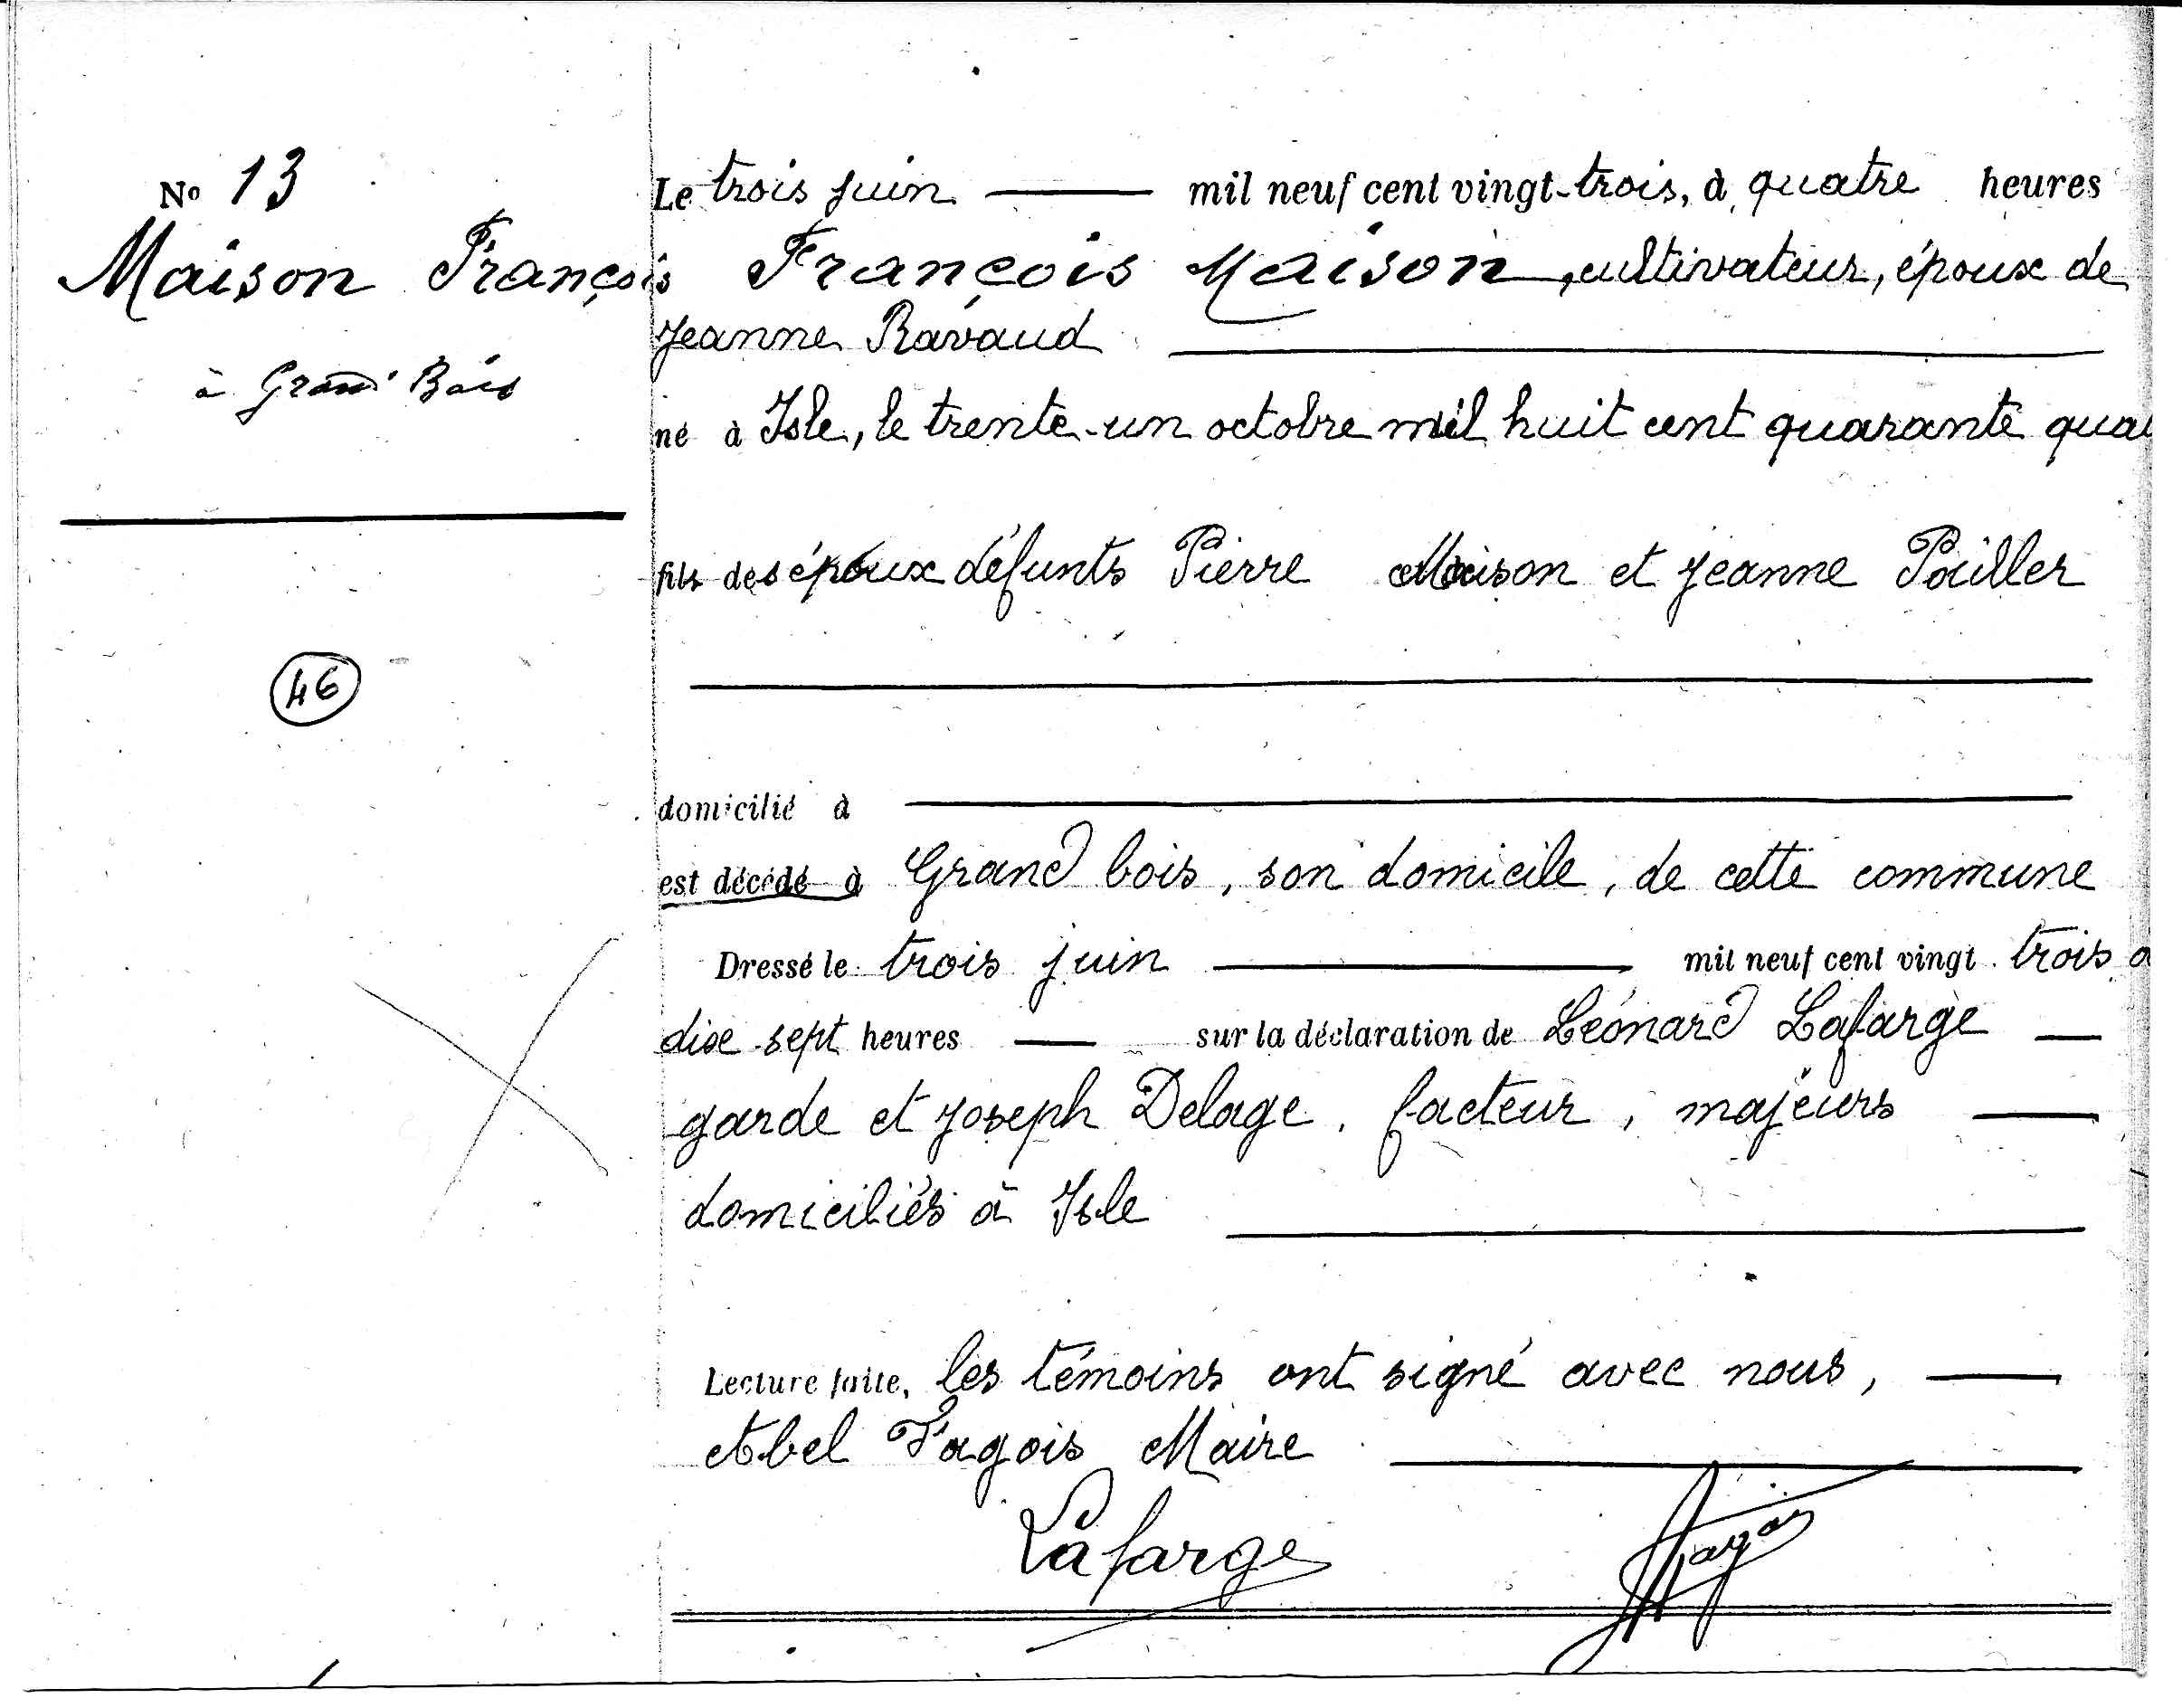 No 13
Maison François
à Grand Bois
46
Le trois juin mil neuf cent vingt-trois, à quatre heures
François Maison, cultivateur, époux de
Jeanne Ravaud
né à Isle, le trente-un octobre mil huit cent quarante qua
fils des époux défunts Pierre Maison et Jeanne Pailler
domicilié à
est décédé à Grand bois, son domicile, de cette commune
Dressé le trois juin mil neuf cent vingt trois à
dix-sept heures sur la déclaration de Léonard Lafarge
garde et Joseph Delage, facteur, majeurs
domiciliés à Isle
Lecture faite, les témoins ont signé avec nous,
Abel Fagois Maire
Lafarge